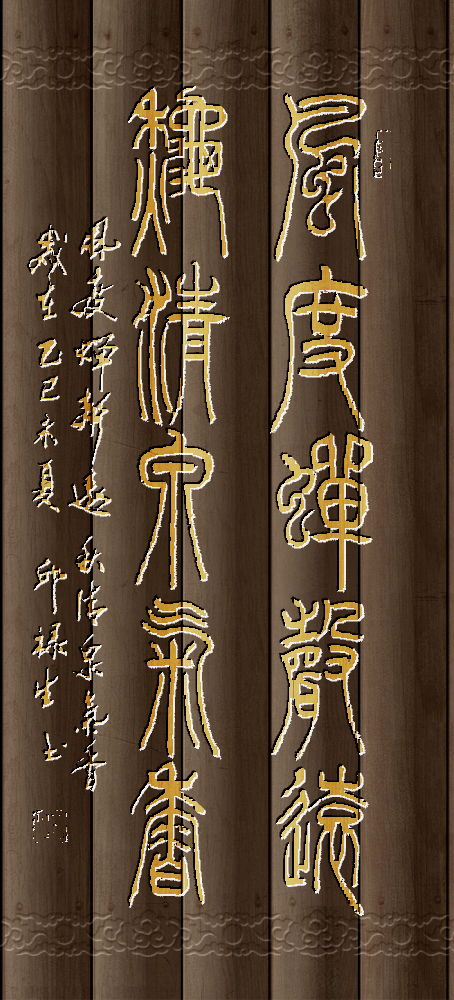 風度蟬聲遠
龝清泉氣香
風度蟬聲遠 秋清泉氣香
歲在乙巳末夏 邱禄生书